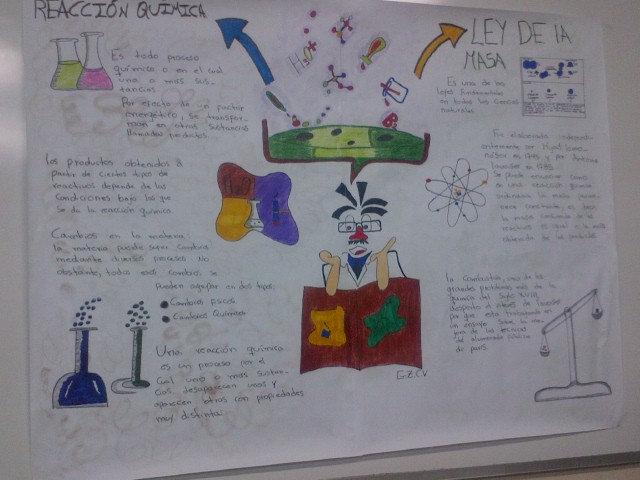 REACCIÓN QUÍMICA
Es todo proceso
químico o en el cual
uno o mas sus-
tancias
Por efecto de un factor
energético, se transfor-
man en otras sustancias
llamadas productos.
los productos obtenidos a
partir de ciertos tipos de
reactivos depende de las
Condiciones bajo las que
se da la reacción química
Cambios en la materia:
la materia puede sufrir Cambios
mediante diversos procesos. No
obstante, todos esos cambios se
pueden agrupar en dos tipos.
Cambios físicos
Cambios Químicos
Una reacción química
es un proceso por el
Cual uno o mas sustan-
cias desaparecen unas y
aparecen otras con propiedades
muy distinta.
LEY DE lA
MASA
Es una de las
leyes fundamentales
en todas las Ciencias
naturales
Fue elaborada independi-
entemente por
1745 y por Antoine
Lavoisier en 1785.
Se puede enunciar como
en una reacción química
ordinaria la masa perma-
nece constante, es decir
la masa consumida de los
reactivos es igual a la masa
obtenida de los productos
la Combustion, uno de los
grandes problemas de la
química del Siglo XVIII
desperto el interés de Lavoisier
por que este trabajaba en
un ensayo Sobre la me-
jora de las técnicas
del alumbrado público
de parís
G.Z.C.V